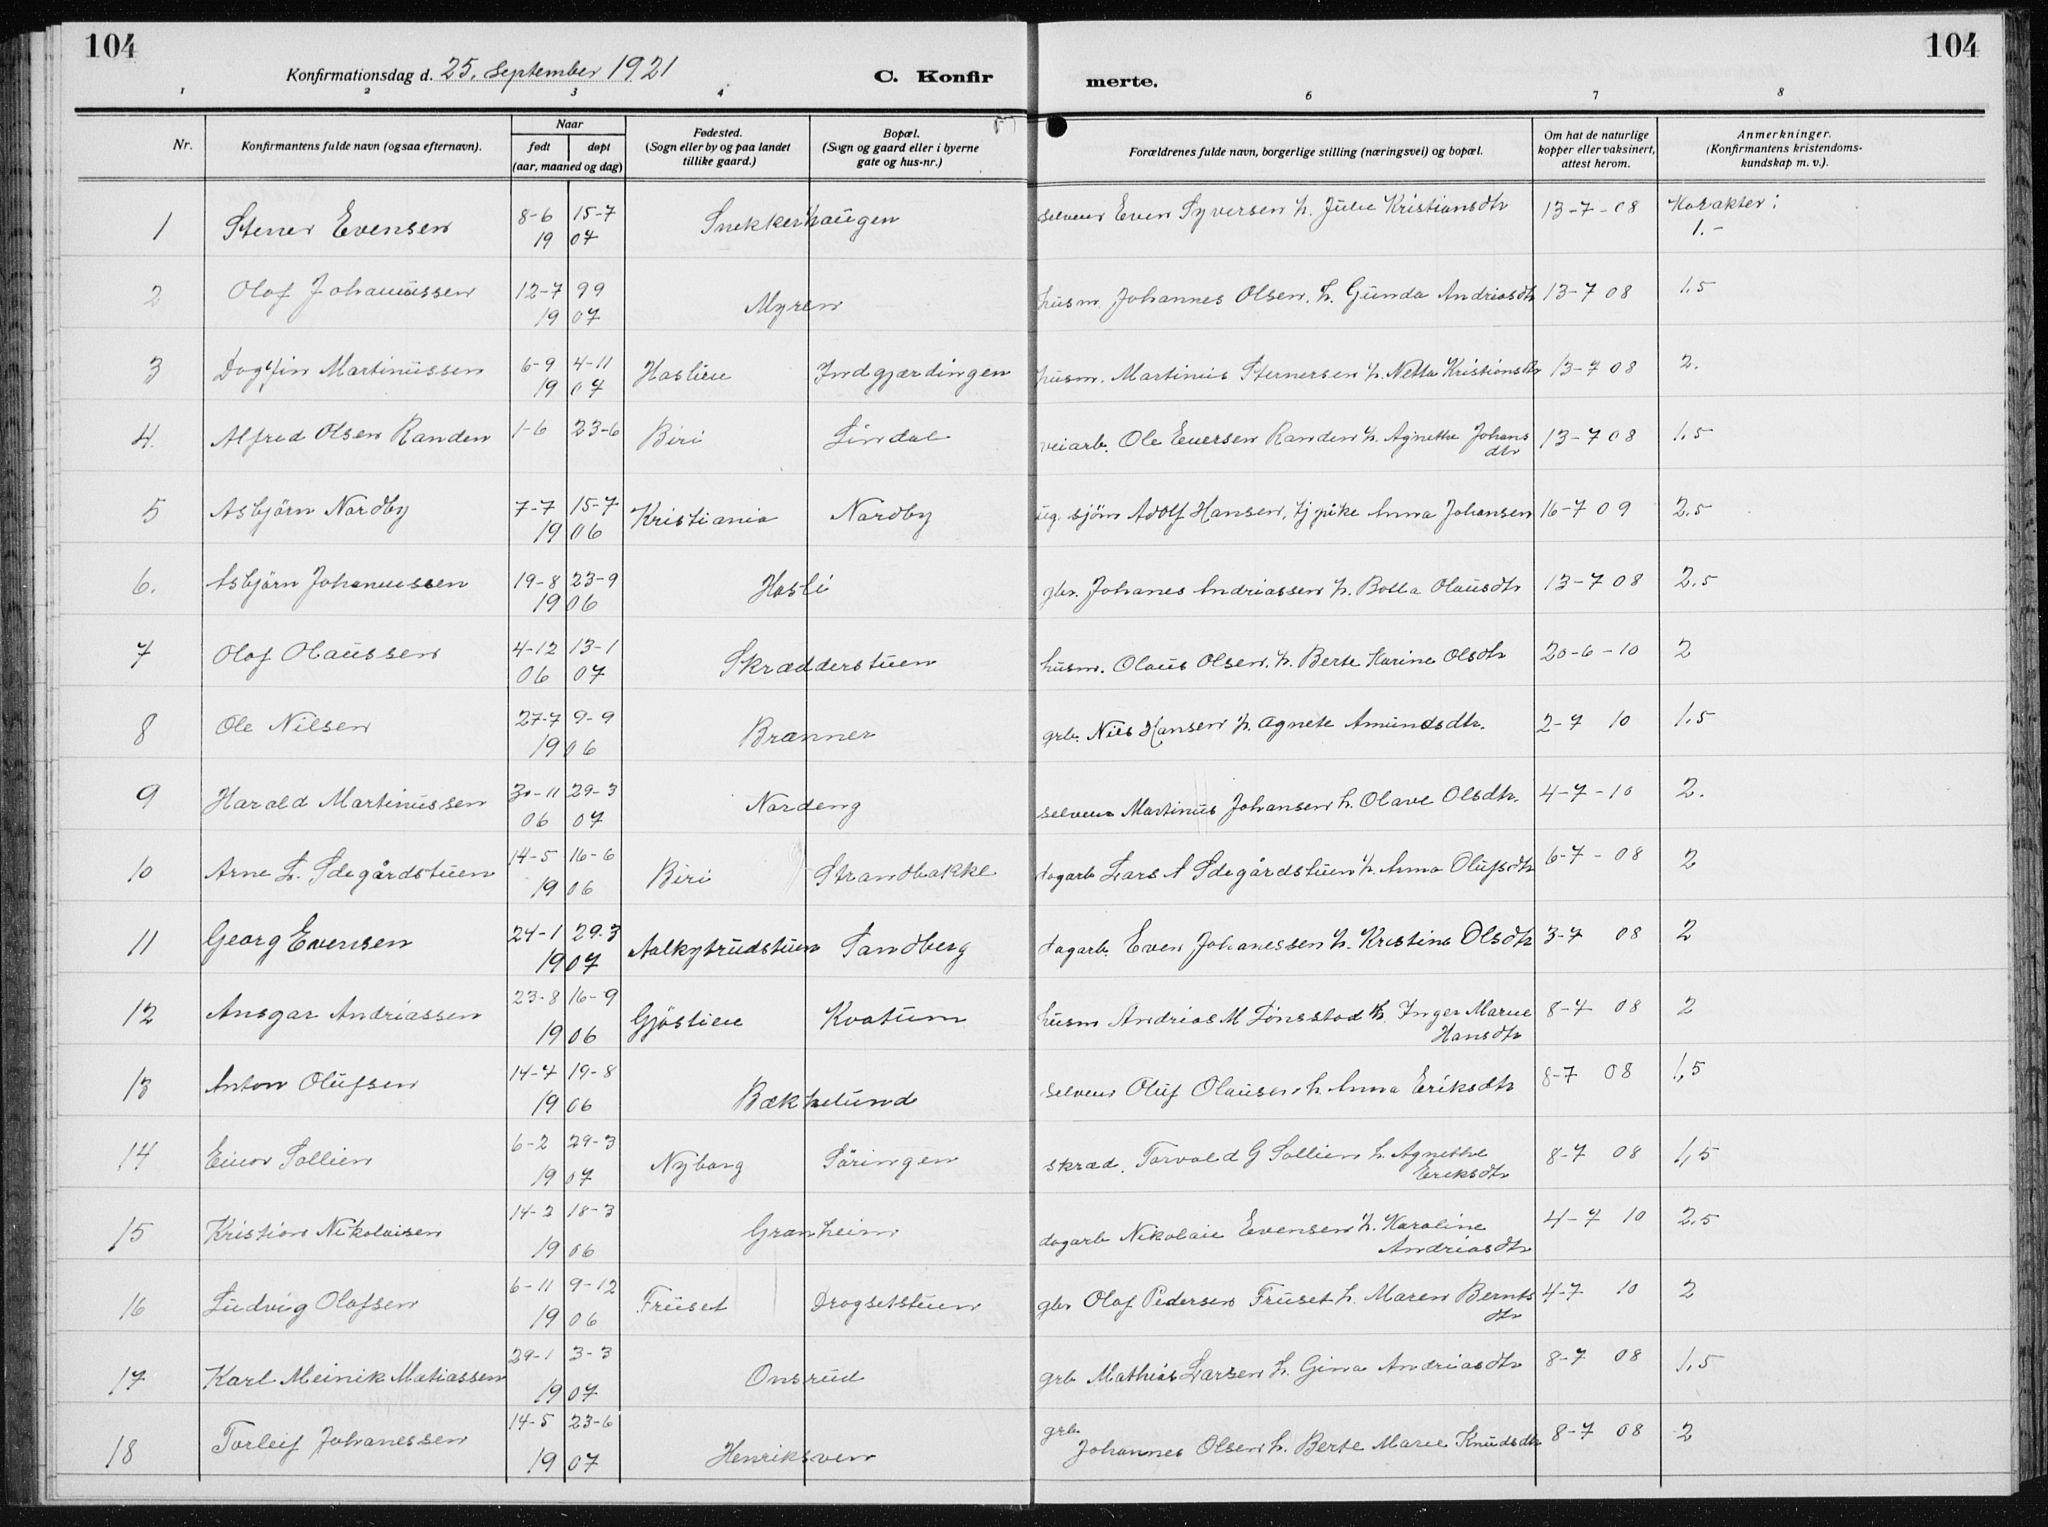 104
Konfirmationsdag d. 25. September 1921
C. Konfirmerte.
104
1 2 3 4 6 7 8
Nr. Konfirmantens fulde navn (ogsaa efternavn). Naar født døpt (aar, maaned og dag) Fødested. (Sogn eller by og paa landet tillike gaard.) Bopæl. (Sogn og gaard eller i byerne gate og hus-nr.) Forældrenes fulde navn, borgerlige stilling (næringsvei) og bopæl. Om hat de naturlige kopper eller vaksinert, attest herom. Anmerkninger. (Konfirmantens kristendomskundskap m. v.).
1 Stener Evensen 8-6 15-7 Snekkerhaugen selveier Even Syversen h. Julie Kristiansdtr 13-7-08 Karakter:
19 07 1.-
2 Olaf Johannssen 12-7 99 Myren husm. Johannes Olsen. h. Gunda Andriasdtr 13-7 08 1.5
19 07
3 Dagfin Martinussen 6-9 4-11 Haslien Indgjærdingen husm. Martinius Sternersen h. Netta Kristiansdtr 13-7 08 2.
19 07
4. Alfred Olsen Randen 1-6 23-6 Biri Lindal veiarb. Ole Eversen Randen h. Agnethe Johans 13-7 08 1.5
dtr
5 Asbjörn Nordby 7-7 15-7 Kristiania Nordby ug. sjöm Adolf Hansen, tj pike Anna Johansen 16-7 09 2.5
19 06
6. Asbjörn Johannessen 19-8 23-9 Hasli gbr. Johanes Andriassen h. Bolla Olausdtr 13-7 08 2.5
19 06
7 Olaf Olaussen 4-12 13-1 Skrædderstuen husm. Olaus Olsen. h. Berte Karine Olsdtr 20-6-10 2
06 07
8 Ole Nilsen 27-7 9-9 Brænner grb. Nils Hansen h. Agnete Amundsdtr. 2-7 10 1.5
19 06
9 Harald Martinussen 30-11 29-3 Nordeng selveier Martinus Johansen h. Olave Olsdtr. 4-7-10 2.
06 07
10 Arne L. Sdegårdstuen 14-5 16-6 Biri Strandbakke dagarb Lars A Sdegårdstuen h. Anna Olufsdtr 6-7-08 2
19 06
11 Georg Evensen 24-1 29.3 Aalkytrudstuen Sandberg dagarb. Even Johanessen h. Kristine Olsdtr 3-7 08 2
19 07
12 Ansgar Andriassen 23-8 16-9 Gjöslien Kvatum husm Andrias M Lönsstad h. Inger Marie 8-7 08 2
19 06 Hansdtr
13 Anton Olufsen 14-7 19-8 Bækhelund selveier Oluf Olausen h. Anna Eriksdtr 8-7 08 1,5
19 06
14 Einar Sollien 6-2 29-3 Nyborg Söringen skræd. Torvald G Sollien h. Agnethe 8-7 08 1,5
19 07 Eriksdtr
15 Kristian Nikolaisen 14-2 18-3 Granheim dagarb Nikolaie Evensen h. Karoline 4-7 10 2.5
19 06 Andriasdtr
16 Ludvig Olafsen 6-11 9-12 Fruset Dragsetstuen gbr Olaf Pedersen Fruset h. Maren Bernts 4-7 10 2
19 06 dtr
17 Karl Meinik Matiassen 29-1 3-3 Onsrud grb Mathias Larsen h. Gina Andriasdtr 8-7 08 1.5
19 07
18 Torleif Johanessen 14-5 23-6 Henriksven grb. Johannes Olsen h. Berte Marie Knudsdtr 8-7 08 2
19 07